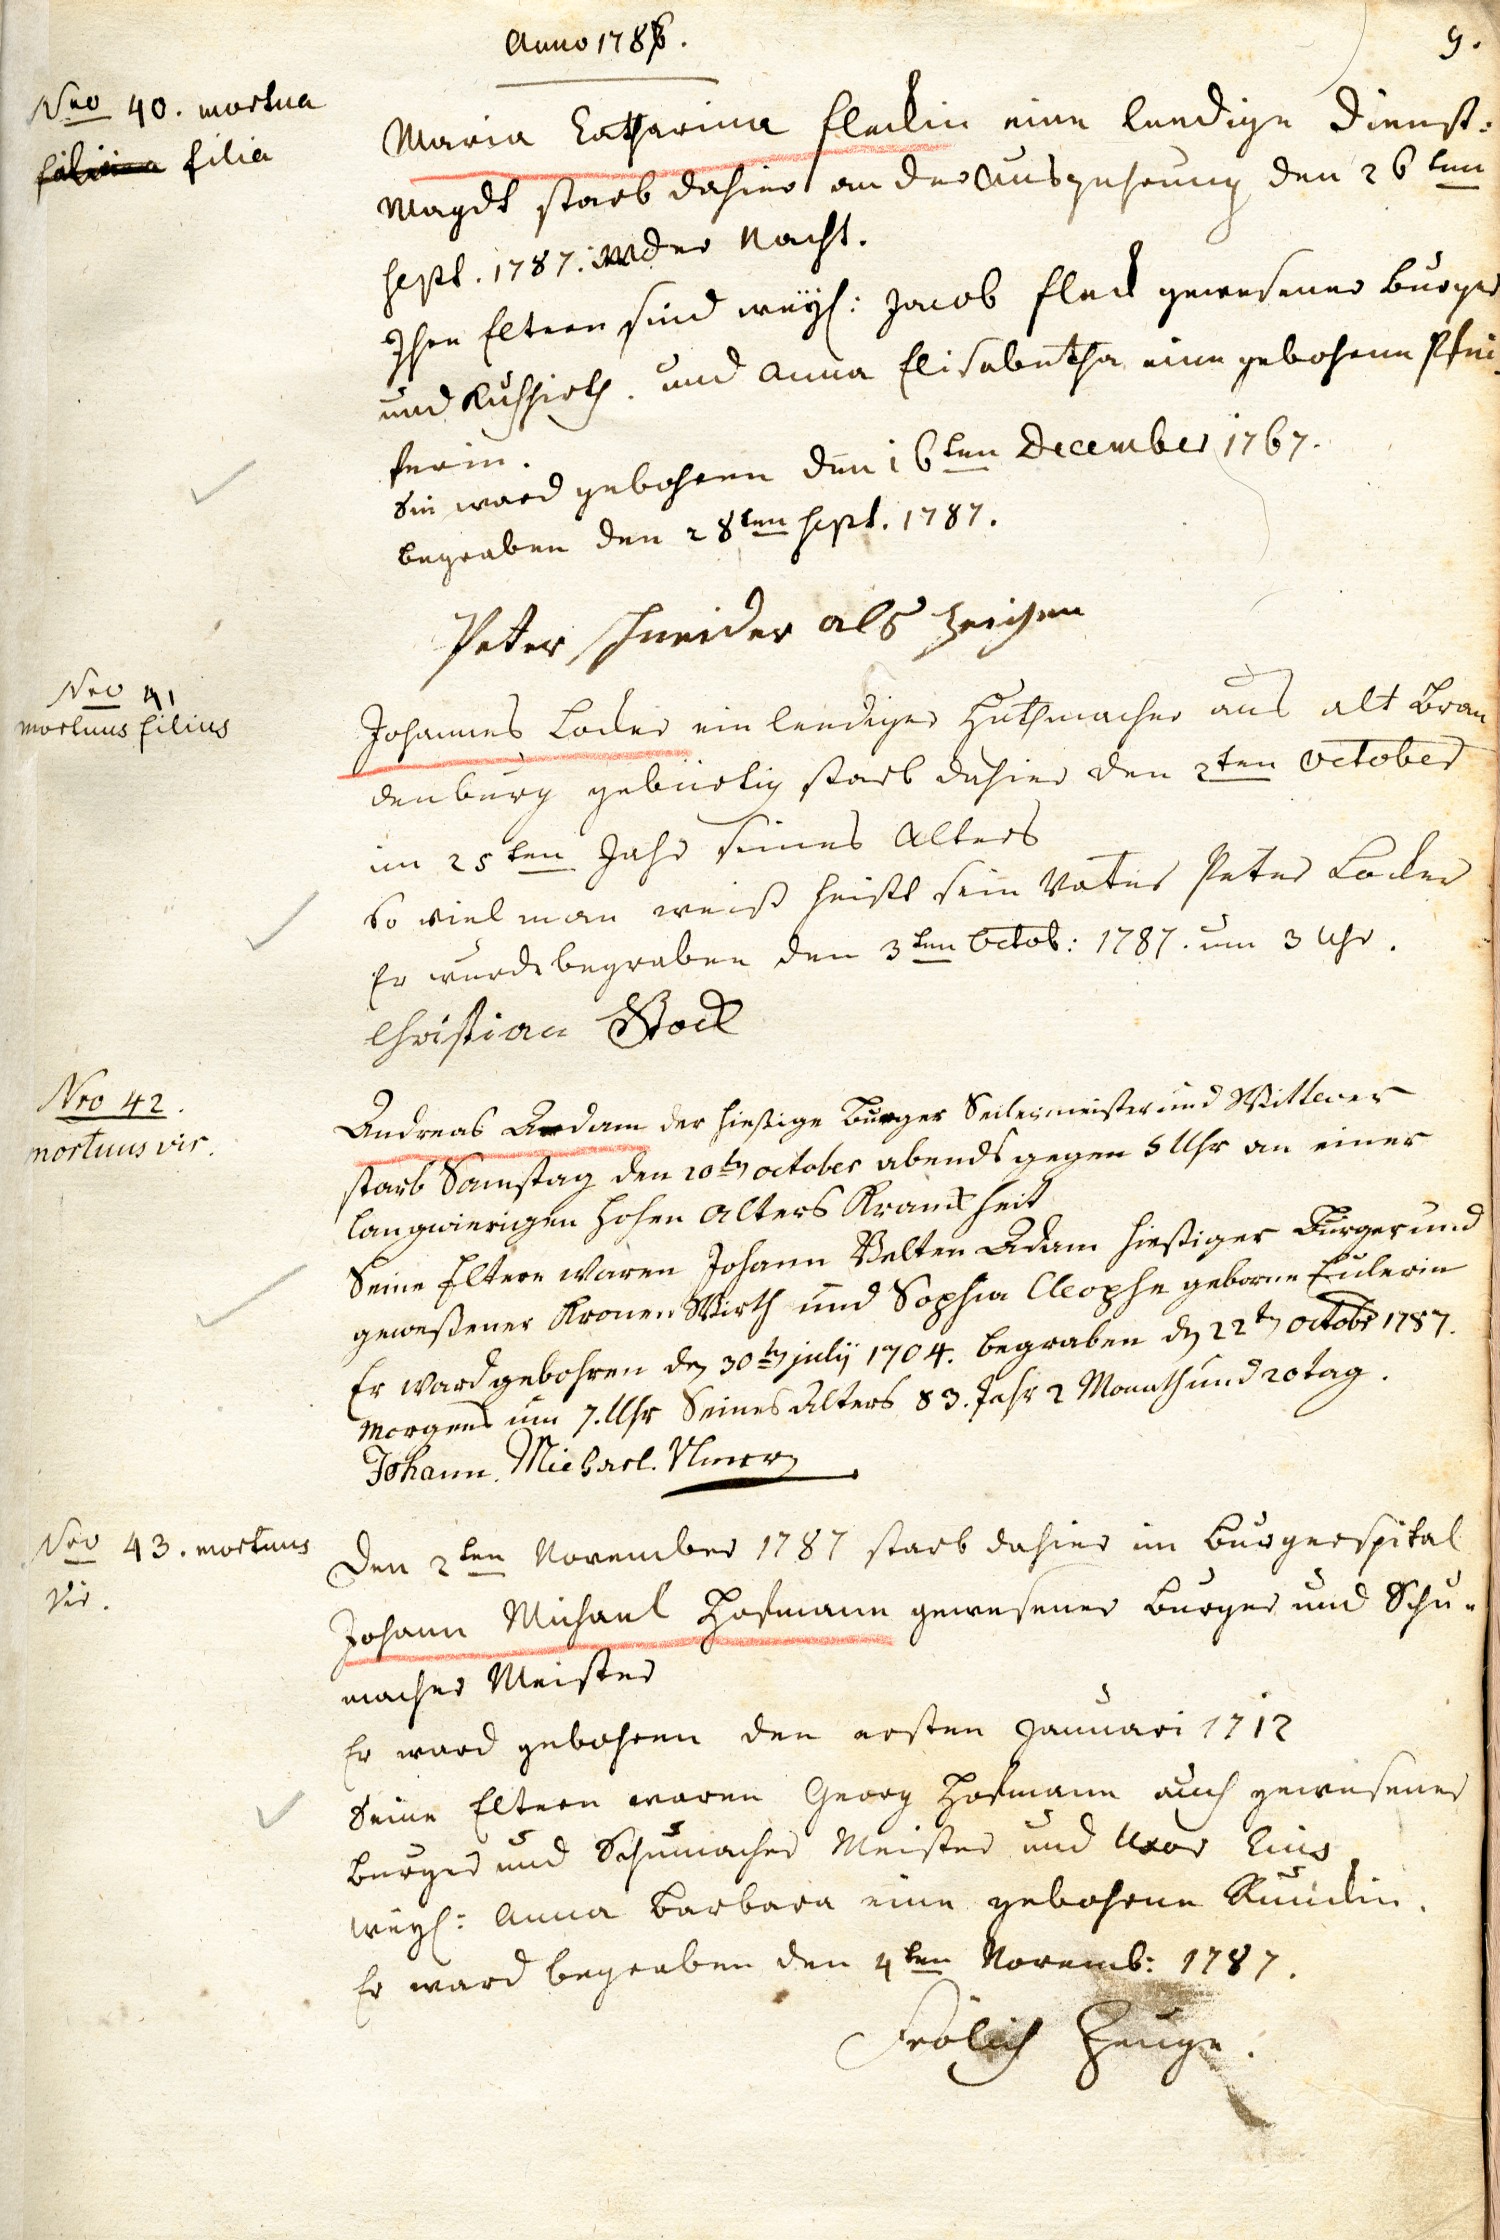 Anno 1786.
9.
Nro 40. mortua
filia
Maria Catharina Fleckin eine leedige Dienst-
Magdt starb dahier an der Auszehrung den 26ten
Sept. 1787. in der Nacht.
Ihre Eltern sind weyl: Jacob Fleck gewesener Burger
und Kuhhirth. und Anna Elisabetha eine gebohrne Pfei-
ferin.
Sie ward gebohren den 16ten December 1767.
begraben den 28ten Sept. 1787.
Peter Schneider als Zeigen
Nro 41
mortuus filius
Johannes Loder ein leediger Huthmacher aus alt Bran
denburg gebürtig starb dahier den 2ten October
im 25ten Jahr seines Alters
So viel man weiß heist sein Vater Peter Loder
Er wurde begraben den 3ten Octob: 1787. um 3 Uhr.
Christian Bock
Nro 42.
mortuus vir.
Andreas Adam der hießige Burger Seilermeister und Wittwer
starb Samstag den 20ten october abends gegen 5 Uhr an einer
langwierigen hohen Alters Krankheit
Seine Eltern waren Johann Velten Adam hießiger Burger und
geweßener Kronen Wirth und Sophia Cleophe geborne Eulerin
Er ward gebohren den 30ten july 1704. begraben den 22ten octobr 1787.
Morgens um 7. Uhr Seines Alters 83. Jahr 2 Monath und 20 tag.
Johann. Michael.
Nro 43. mortuus
vir.
Den 2ten November 1787 starb dahier im Burgerspital
Johann Michael Hofmann gewesener Burger und Schu-
macher Meister
Er ward gebohren den ersten Januari 1712
Seine Eltern waren Georg Hofmann auch gewesener
Burger und Schumacher Meister und Uxor Eius
weyl: Anna Barbara eine gebohrne
Er ward begraben den 4ten Novemb: 1787.
Frölich Zeuge.